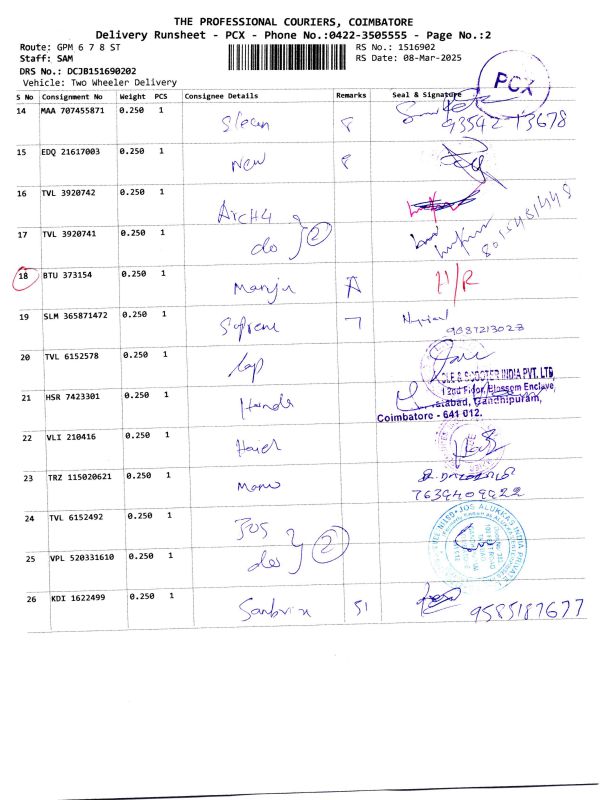 THE PROFESSIONAL COURIERS, COIMBATORE
Delivery Runsheet - PCX - Phone No.:0422-3505555 - Page No.:2
Route: GPM 6 7 8 ST RS No.: 1516902
Staff: SAM RS Date: 08-Mar-2025
DRS No.: DCJB151690202
Vehicle: Two Wheeler Delivery
PCX
S No Consignment No Weight PCS Consignee Details Remarks Seal & Signature
14 MAA 707455871 0.250 1 8
15 EDQ 21617003 0.250 1 New 8
16 TVL 3920742 0.250 1
17 TVL 3920741 0.250 1 do 2
18 BTU 373154 0.250 1 Manju A H/R
19 SLM 365871472 0.250 1 7
20 TVL 6152578 0.250 1
CLE & SCOOTER INDIA PVT. LTD,
21 HSR 7423301 0.250 1
12nd Floor, Blossom Enclave,
Gandhipuram,
Coimbatore - 641 012.
22 VLI 210416 0.250 1
23 TRZ 115020621 0.250 1
7639409922
24 TVL 6152492 0.250 1 Jos
JOS ALUKKAS INDIA PRIVATE
25 VPL 520331610 0.250 1 do 2
26 KDI 1622499 0.250 1 51 9585187677